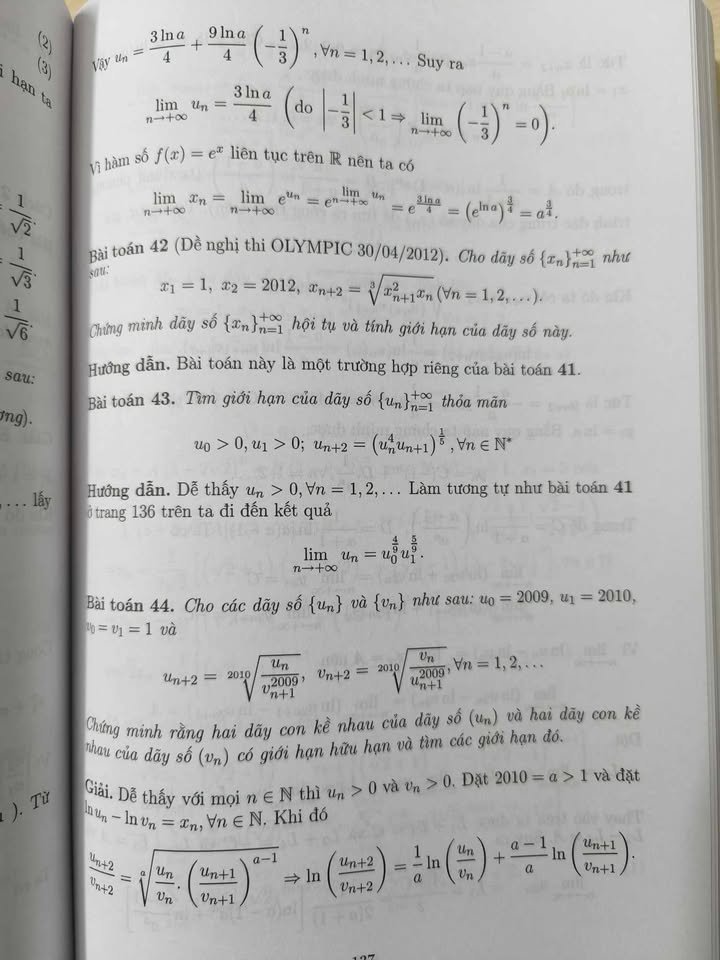 (2)
(3)
i hạn ta
1/√2.
1/√3.
1/√6.
sau:
ơng).
… lấy
). Từ
Vậy uₙ = (3 ln a)/4 + (9 ln a)/4 (−1/3)ⁿ, ∀n = 1, 2, … Suy ra
lim_{n→+∞} uₙ = (3 ln a)/4 (do |−1/3| < 1 ⇒ lim_{n→+∞} (−1/3)ⁿ = 0).
Vì hàm số f(x) = eˣ liên tục trên ℝ nên ta có
lim_{n→+∞} xₙ = lim_{n→+∞} e^{uₙ} = e^{lim_{n→+∞} uₙ} = e^{(3 ln a)/4} = (e^{ln a})^{3/4} = a^{3/4}.
Bài toán 42 (Đề nghị thi OLYMPIC 30/04/2012). Cho dãy số {xₙ}_{n=1}^{+∞} như
sau:
x₁ = 1, x₂ = 2012, x_{n+2} = ∛(x²_{n+1}xₙ) (∀n = 1, 2, …).
Chứng minh dãy số {xₙ}_{n=1}^{+∞} hội tụ và tính giới hạn của dãy số này.
Hướng dẫn. Bài toán này là một trường hợp riêng của bài toán 41.
Bài toán 43. Tìm giới hạn của dãy số {uₙ}_{n=1}^{+∞} thỏa mãn
u₀ > 0, u₁ > 0; u_{n+2} = (uₙ⁴u_{n+1})^{1/5}, ∀n ∈ ℕ*
Hướng dẫn. Dễ thấy uₙ > 0, ∀n = 1, 2, … Làm tương tự như bài toán 41
ở trang 136 trên ta đi đến kết quả
lim_{n→+∞} uₙ = u₀^{4/9}u₁^{5/9}.
Bài toán 44. Cho các dãy số {uₙ} và {vₙ} như sau: u₀ = 2009, u₁ = 2010,
v₀ = v₁ = 1 và
u_{n+2} = ²⁰¹⁰√(uₙ/v_{n+1}^{2009}), v_{n+2} = ²⁰¹⁰√(vₙ/u_{n+1}^{2009}), ∀n = 1, 2, …
Chứng minh rằng hai dãy con kề nhau của dãy số (uₙ) và hai dãy con kề
nhau của dãy số (vₙ) có giới hạn hữu hạn và tìm các giới hạn đó.
Giải. Dễ thấy với mọi n ∈ ℕ thì uₙ > 0 và vₙ > 0. Đặt 2010 = a > 1 và đặt
ln uₙ − ln vₙ = xₙ, ∀n ∈ ℕ. Khi đó
u_{n+2}/v_{n+2} = ᵃ√(uₙ/vₙ . (u_{n+1}/v_{n+1})^{a−1}) ⇒ ln(u_{n+2}/v_{n+2}) = 1/a ln(uₙ/vₙ) + (a−1)/a ln(u_{n+1}/v_{n+1}).